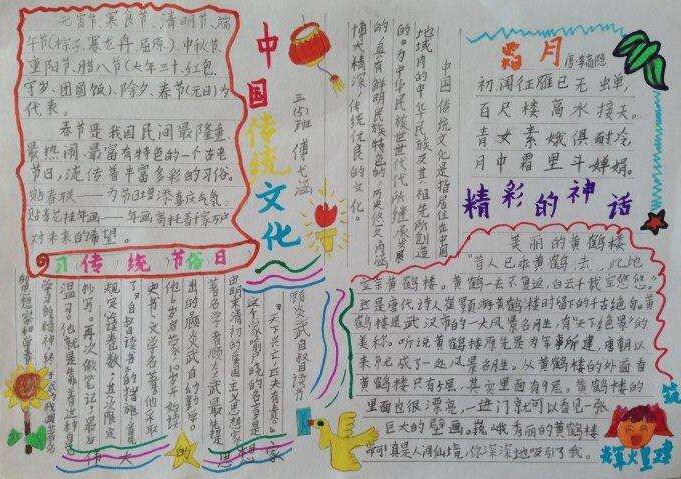 元宵节、寒食节、清明节、端
午节(粽子、赛龙舟、屈原)、中秋节、
重阳节、腊八节(大年三十、红包、
守岁、团圆饭)、除夕、春节(元日)为
代表。
春节是我国民间最隆重、
最热闹、最富有特色的一个古老
节日,流传着丰富多彩的习俗。
贴春联——为节日增添喜庆气氛。
对未来的希望。
传统节日
习俗
中国传统文化
三(5)班
中国传统文化是指居住在中国
地域内的中华民族及其祖先所创造
的、为中华民族世世代代所继承发展
的、具有鲜明民族特色的、历史悠久、内涵
博大精深、传统优良的文化。
霜月
唐 李商隐
初闻征雁已无蝉,
百尺楼高水接天。
青女素娥俱耐冷,
月中霜里斗婵娟。
精彩的神话
美丽的黄鹤楼
“昔人已乘黄鹤去,此地
空余黄鹤楼。黄鹤一去不复返,白云千载空悠悠。”
这是唐代诗人崔颢游黄鹤楼时留下的千古绝句。黄
鹤楼是武汉市的一大风景名胜,有“天下绝景”的
美称。听说黄鹤楼原先是为军事所建,唐朝以
来就成了一处风景名胜。从黄鹤楼的外面看
黄鹤楼只有5层,其实里面有9层。黄鹤楼的
里面也很漂亮,一进门就可以看见一张
巨大的壁画。巍峨秀丽的黄鹤楼
啊!真是人间仙境,你深深地吸引了我。
筑
辉煌建
顾炎武自督读书
“天下兴亡,匹夫有责。”
这个深刻的名言是
明末清初的爱国主义思想家、
著名学者顾炎武最先提
出的。顾炎武自幼勤学。
他6岁启蒙,10岁开始读
史书、文学名著。他采取
了“自督读书”的措施:首先
规定读卷数,其次限定
抄写,再次做笔记,最后
温习。
伟大的思想家